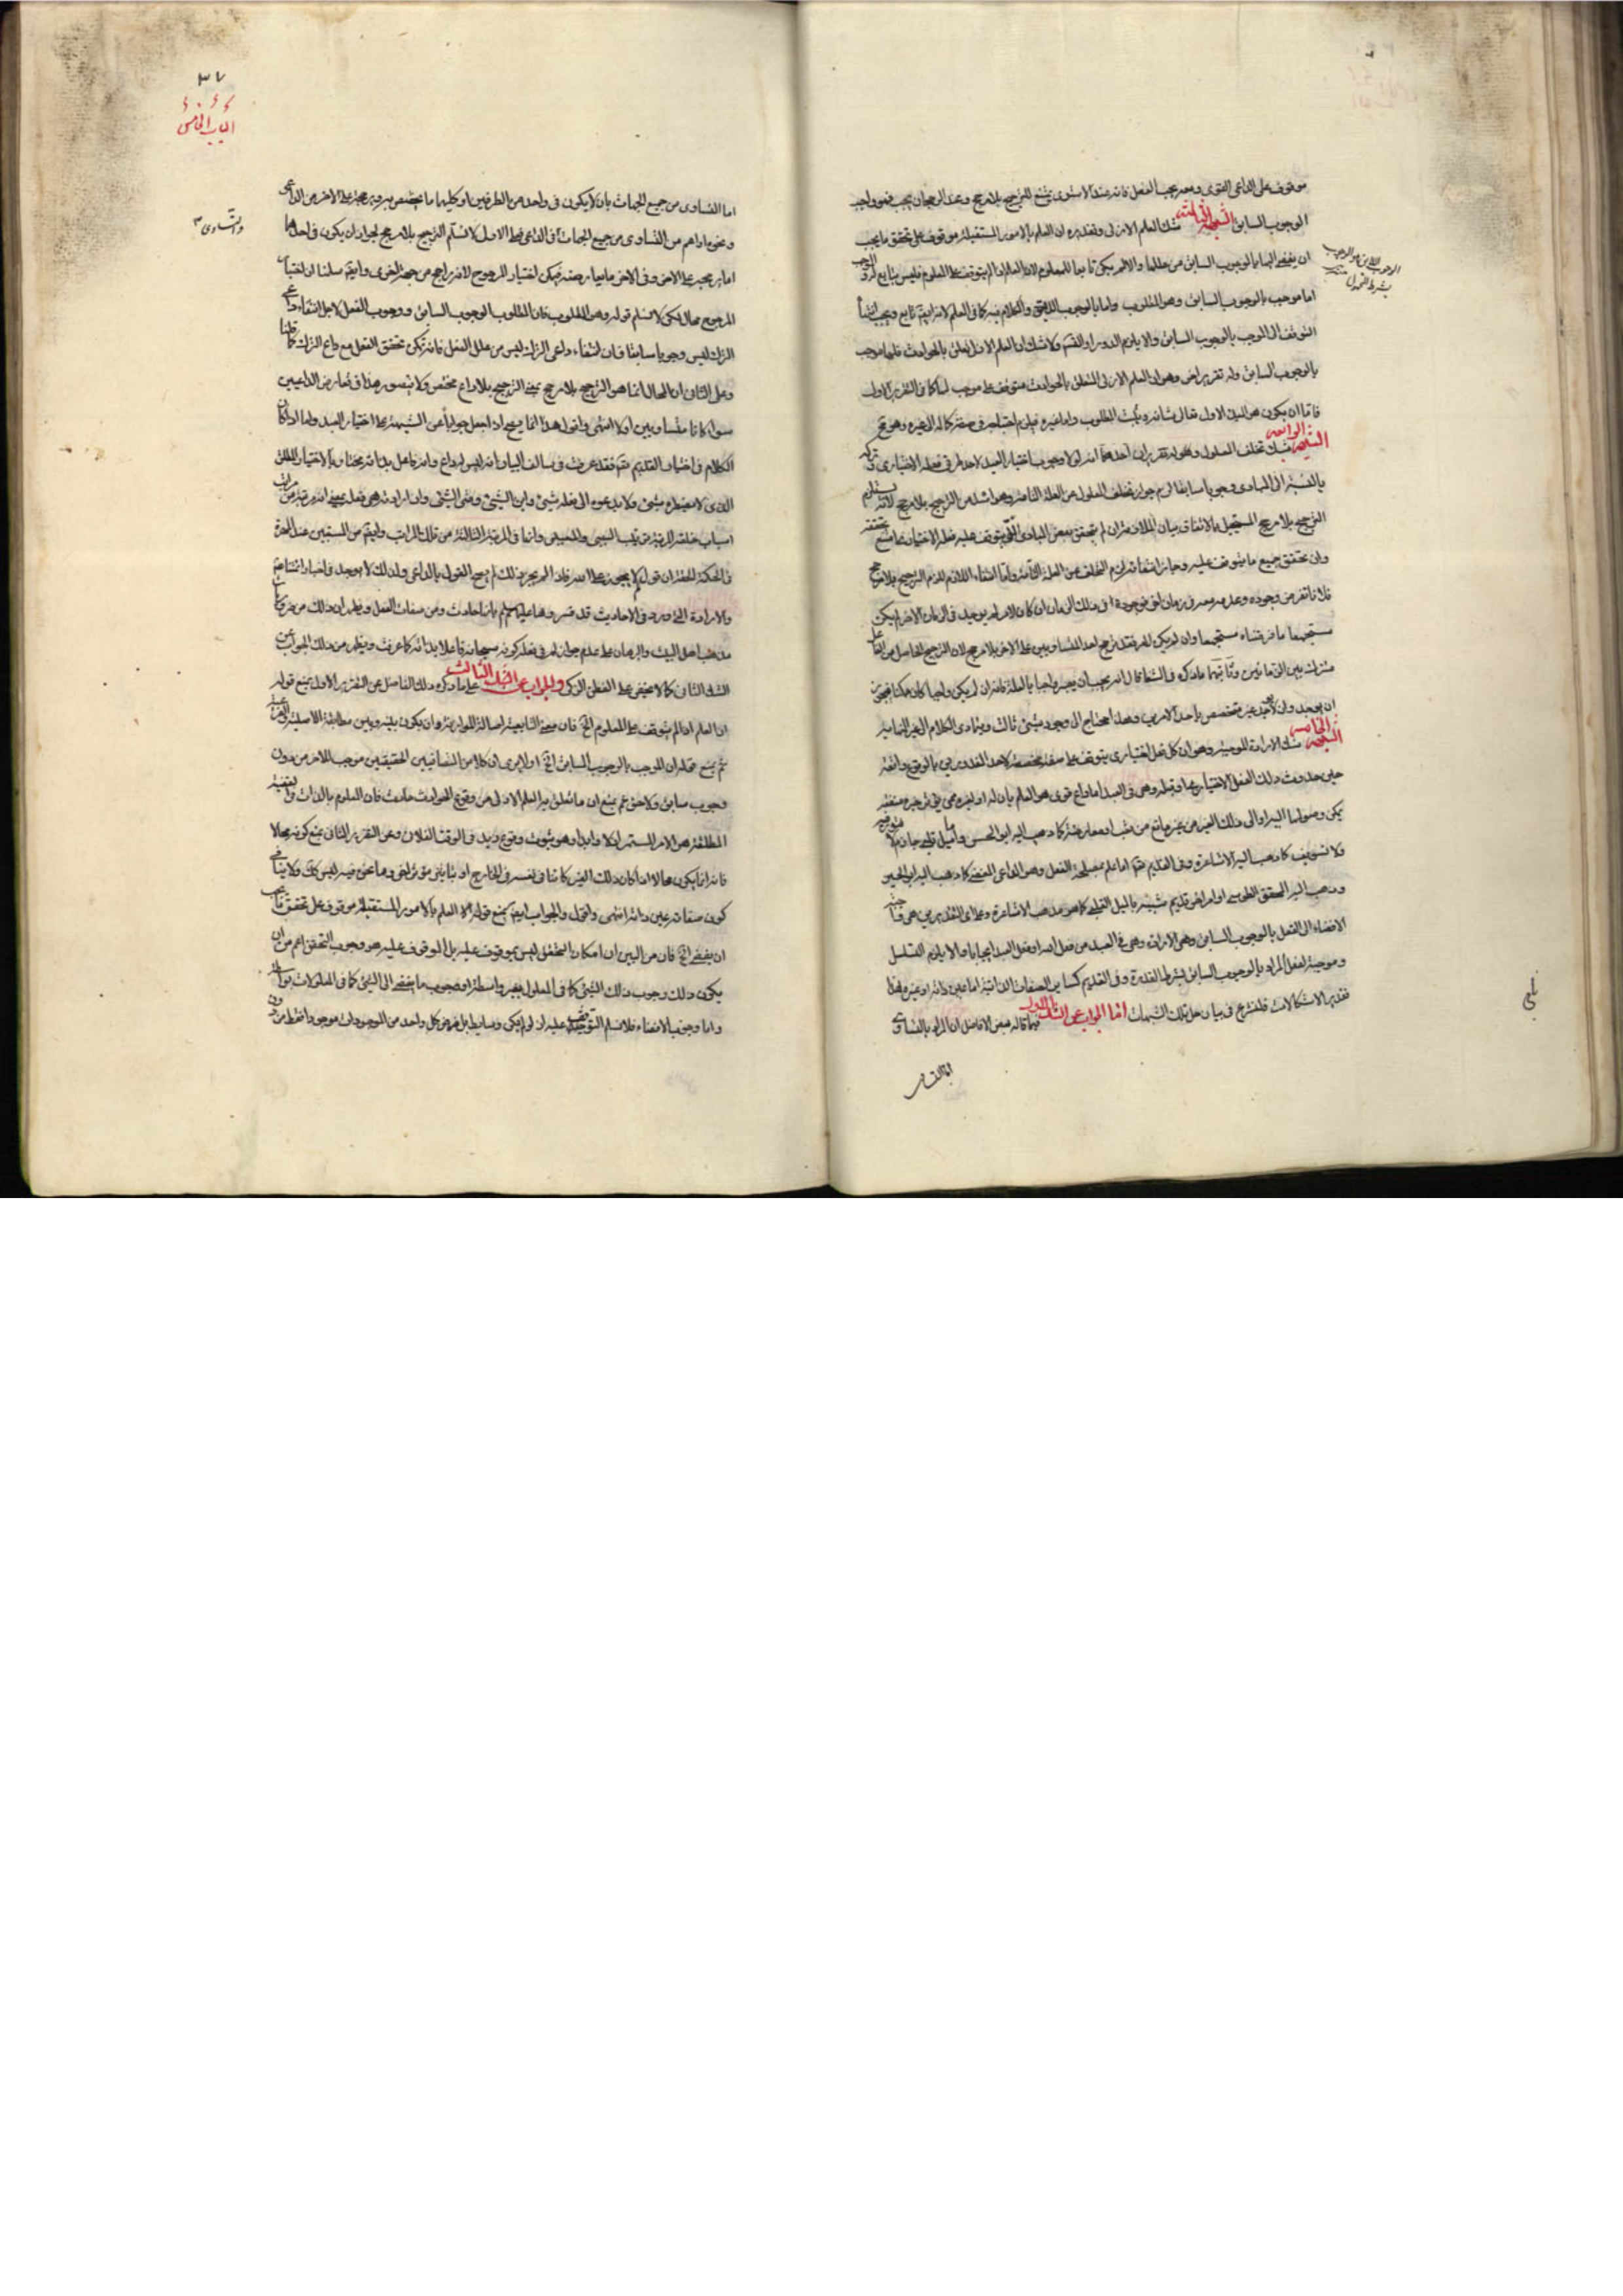 موقوف على الداعى القوى ومعه يجب الفعل فانه عند الاستوى يمتنع الترجيح بلا مرجح وعند الرجحان يجب فهو واجب
الوجوب السابق الشبهة الثالثة شك العلم الازلى وتقديره ان العلم بالامور المستقبلة موقوف على تحقق ما يجب
ان يفضى اليها بالوجوب السابق من عللها والا لم يكن تابعا للمعلوم لان العلم اذا لم يتوقف على المعلوم فليس بتابع له
اما موجب بالوجوب السابق وهو المطلوب واما بالوجوب اللاحق والكلام فيه كما فى العلم لانه ايضا تابع ويجب
التوقف الى الموجب بالوجوب السابق والا يلزم الدور او التسلسل ولا شك ان العلم الازلى تعلق بالحوادث فلها موجب
بالوجوب السابق وله تقرير اخر وهو ان العلم الازلى المتعلق بالحوادث متوقف على موجب لها كما فى التقرير الاول
فاما ان يكون هو المبدء الاول تعالى شانه ويثبت المطلوب واما غيره فيلزم احتياجه فى صفة كماله الى غيره وهو مح
الشبهة الرابعة شك تخلف المعلول وهو له تقريران احدهما انه لولا وجوب اختيار العبد لاحد طرفى فعله الاختيارى وتركه
بالنسبة الى المبادى وجوبا سابقا لزم جواز تخلف المعلول عن العلة التامة وهو اشد من الترجيح بلا مرجح لانه يستلزم
الترجيح بلا مرجح المستحيل بالاتفاق بيان الملازمة ان لم يتحقق بعض المبادى التى يتوقف عليه فعله الاختيارى امتنع تحققه
وان تحقق جميع ما يتوقف عليه وجاز انتفائه لزم التخلف عن العلة التامة واما انتفاء اللازم للزوم الترجيح بلا مرجح
فلانا نفرض وجوده وعدمه معه فى زمان اخر فوجوده فى ذلك الزمان ان كان لامر لم يوجد فى الزمان الاخر لم يكن
مستجمعا ما فرضناه مستجمعا وان لم يكن لامر فقد ترجح احد المتساويين على الاخر بلا مرجح لان الترجيح الحاصل من الفاعل
مشترك بين الزمانين وثانيهما ما ذكره فى الشفا قال انه يجب ان يصير واجبا بالعلة فانه ان لم يكن واجبا كان ممكنا فيجوز
ان يوجد وان لا يوجد غير متخصص باحد الامرين وهذا محتاج الى وجود شئ ثالث ويتمادى الكلام الى غير النهاية
الشبهة الخامسة شك الارادة الموجبة وهو ان كل فعل اختيارى يتوقف على صفة مخصصة لاحد المقدورين بالوقوع واقعة
حين حدوث ذلك الفعل الاختيارى او قبله وهى فى العبد اما داع قوى هو العلم بان له او لغيره ممن يؤثر خيره منفعة
يمكن وصولها اليه او الى ذلك الغير من غير مانع من تعب او معارضة كما ذهب اليه ابو الحسين واما ميل قلبى جازم
ولا تسويف كما ذهب اليه الاشاعرة وفى القديم تعالى اما علم بمصلحة الفعل وهو الداعى المحض كما ذهب اليه ابو الحسين
وذهب اليه المحقق الطوسى او امر اخر قديم شبيه بالميل القلبى كما هو مذهب الاشاعرة وعلى التقديرين هى
الافضاء الى الفعل بالوجوب السابق وهى الارادة وهى فى العبد من فعل الله او فعل العبد ايجابا والا يلزم التسلسل
وموجبة لفعل المراد بالوجوب السابق بشرط القدرة وفى القديم كساير الصفات الذاتية اما عين ذاته او غيره فهذا
تقدير الاشكالات فلنشرع فى بيان حل تلك الشبهات اما الجواب عن الشك الاول فيما قاله بعض الافاضل ان المراد بالتساوى
الوجوب اللاحق هو الوجوب
بشرط المحمول منه
بلغ
اما التساوى
٣٧
الباب الخامس
اما التساوى من جميع الجهات بان لا يكون فى واحد من الطرفين او كليهما ما يختص به ويرجحه على الاخر من الداعى
ونحوه او اعم من التساوى من جميع الجهات او فى الداعى فقط الاول لا نسلم الترجيح بلا مرجح لجواز ان يكون فى احدهما
والتساوى ٣
امر يرجحه على الاخر وفى الاخر ما يعارضه فيمكن اختيار المرجوح لانه راجح من جهة اخرى وايضا سلمنا ان اختيار
المرجوح محال لكن لا نسلم قوله وهو المطلوب فان المطلوب الوجوب السابق ووجوب الفعل لاجل انتفاء داعى
الترك ليس وجوبا سابقا فان انتفاء داعى الترك ليس من علل الفعل فانه يمكن تحقق الفعل مع داع الترك كما قلنا
وعلى الثانى ان المحال انما هو الترجح بلا مرجح بمعنى الترجيح بلا داع مختص ولا يتصور هذا فى تعارض الداعيين
سواء كانا متساويين او لا انتهى واقول هذا انما يصح اذا جعل جوابا عن الشبهة على اختيار العبد واما اذا كان
الكلام فى اختيار القديم تعالى فقد عرفت فى سالف البيان انه ليس له داع وانه فاعل بذاته مختار بالاختيار المطلق
الذى لا يضطره شئ ولا يدعوه الى فعله شئ واين الشئ ومتى الشئ وان ارادته هى فعله بمعنى انه مرتبة من مراتب
اسباب خلقه المرتبة ترتيب السببى والمسببى وانها فى المرتبة الثالثة من تلك المراتب وايضا من المستبين عند المهرة
فى الحكمة الحقة ان قول كن لا يجوز على الله فاذا لم يجز ذلك لم يصح القول بالداعى ولذلك لا يوجد فى اخبار ائمتنا ع
والارادة التى ورد فى الاحاديث قد فسروها عليهم السلم بانها حادث ومن صفات الفعل ويظهر ان ذلك من ضروريات
مذهب اهل البيت والبرهان على عدم جواز امر فى فعله كونه سبحانه فاعلا بذاته كما عرفت ويظهر من ذلك الجواب عن
الشك الثانى كما لا يخفى على الفطن الزكى والجواب عن الشك الثالث على ما ذكره ذلك الفاضل عن التقرير الاول بمنع قوله
ان العلم اذا لم يتوقف على المعلوم الخ فان معنى التابعية اصالة الموازنة وان يكون بينه وبين مطابقة الاصلية والفرعية
ثم بمنع قوله ان الموجب بالوجوب السابق الخ اولا يرى ان كلا من المتضايفين الحقيقيين موجب للاخر من دون
وجوب سابق ولاحق ثم بمنع ان ما تعلق به العلم الازلى من وقوع الحوادث حادث فان المعلوم بالذات والحقيقة
المطلقة هو الامر المستمر ازلا وابدا وهو ثبوت وقوع زيد فى الوقت الفلان وعن التقرير الثانى بمنع كونه محالا
فانه انما يكون محالا اذا كان ذلك الغير كائنا فى نفسه فى الخارج او بتاثير مؤثر اخر وما نحن فيه ليس كذلك ولا ينافى
كون صفاته عين ذاته انتهى واقول والجواب ايضا بمنع قوله ان العلم بالامور المستقبلة موقوف على تحقق ما يجب
ان يفضى الخ فان من البين ان امكان التحقق ليس بموقوف عليه بل الموقوف عليه هو وجوب التحقق اعم من ان
يكون ذلك وجوب ذلك الشئ كما فى المعلول بغير واسطة او وجوب ما يفضى الى الشئ كما فى المعلولات بواسطة
واما وجوب الافضاء فلا نسلم التوقف عليه اذ لو لم يكن وسايط بل فرض كل واحد من الموجودات موجودا فقط من دون